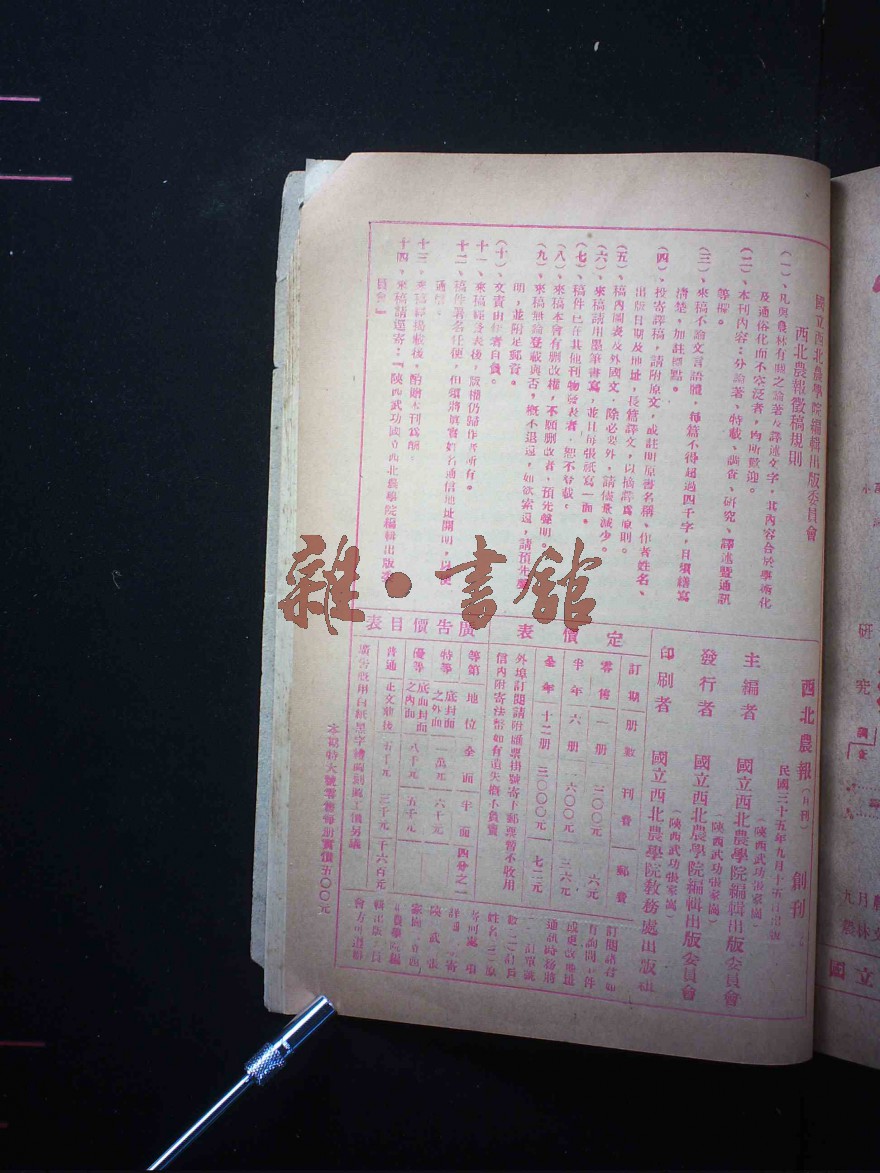 國立西北農學院編輯出版委員會
西北農報徵稿規則
(一)、凡與農林有關之論著及譯述文字，其內容合於學術化
及通俗化而不空泛者，均所歡迎。
(二)、本刊內容：分論著、特載、調查、研究、譯述暨通訊
等欄。
(三)、來稿不論文言語體，每篇不得超過四千字，且須繕寫
清楚，加註標點。
(四)、投寄譯稿，請附原文，或註明原書名稱、作者姓名、
出版日期及地址，長篇譯文，以摘譯為原則。
(五)、稿內圖表及外國文，除必要外，請儘量減少。
(六)、來稿請用墨筆書寫，並且每張紙寫一面。
(七)、稿件已在其他刊物發表者，恕不登載，
(八)、來稿本會有刪改權，不願刪改者、預先聲明。
(九)、來稿無論登載與否，概不退還，如欲索還，請預先聲
明，並附足郵資。
(十)、文責由作者自負。
十一、來稿經登表後，版權仍歸作者所有。
十二、稿件署名任便，但須將眞實姓名通信地址開明，以便
通信。
十三、來稿經揭載後，酌贈本刊為酬，
十四、來稿請逕寄：『陝西武功國立西北農學院編輯出版委
員會』
西北農報（月刊） 創刊
民國三十五年九月十五日出版
主編者 國立西北農學院編輯出版委員會
（陝西武功張家崗）
發行者 國立西北農學院編輯出版委員會
（陝西武功張家崗）
印刷者 國立西北農學院教務處出版組
定價表
訂期 册數 刊費 郵費
零售 一册 三〇〇元 六元
半年 六册 一六〇〇元 三六元
全年 十二册 三〇〇〇元 七二元
外埠訂閱請附匯票掛號寄下郵票暫不收用
信內附寄法幣如有遺失概不負責
廣告價目表
等第 地位 全面 半面 四分之一
特等 底封面之外面 一萬元 六千元
優等 底面封面之內面 八千元 五千元
普通 正文前後 五千元 三千元 千六百元
訂閱諸君如
有詢問
或更改地址
通訊時務將
姓名
本期特大號零售每册實價五〇〇元
研究
調查
國立